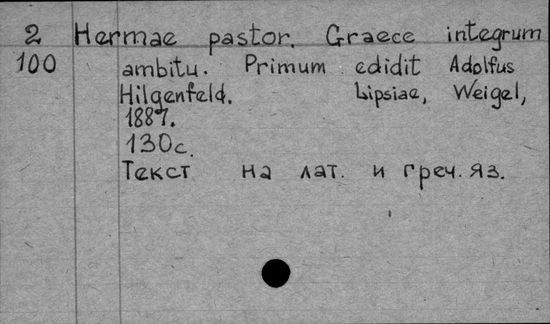 2 Hermae pastor. Graece integrum
100 ambitu. Primum edidit Adolfus
Hilgenfeld. Lipsiae, Weigel,
1887.
130с.
Текст на лат. и греч. яз.